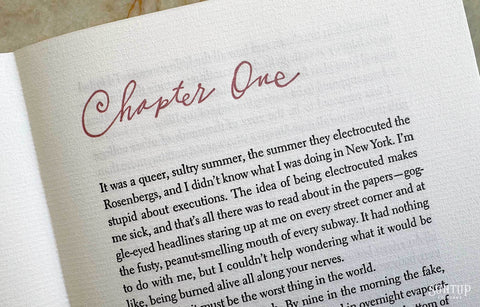 Chapter One
It was a queer, sultry summer, the summer they electrocuted the
Rosenbergs, and I didn't know what I was doing in New York. I'm
stupid about executions. The idea of being electrocuted makes
me sick, and that's all there was to read about in the papers—gog-
gle-eyed headlines staring up at me on every street corner and at
the fusty, peanut-smelling mouth of every subway. It had nothing
to do with me, but I couldn't help wondering what it would be
like, being burned alive all along your nerves.
it must be the worst thing in the world.
By nine in the morning the fake,
overnight evapor